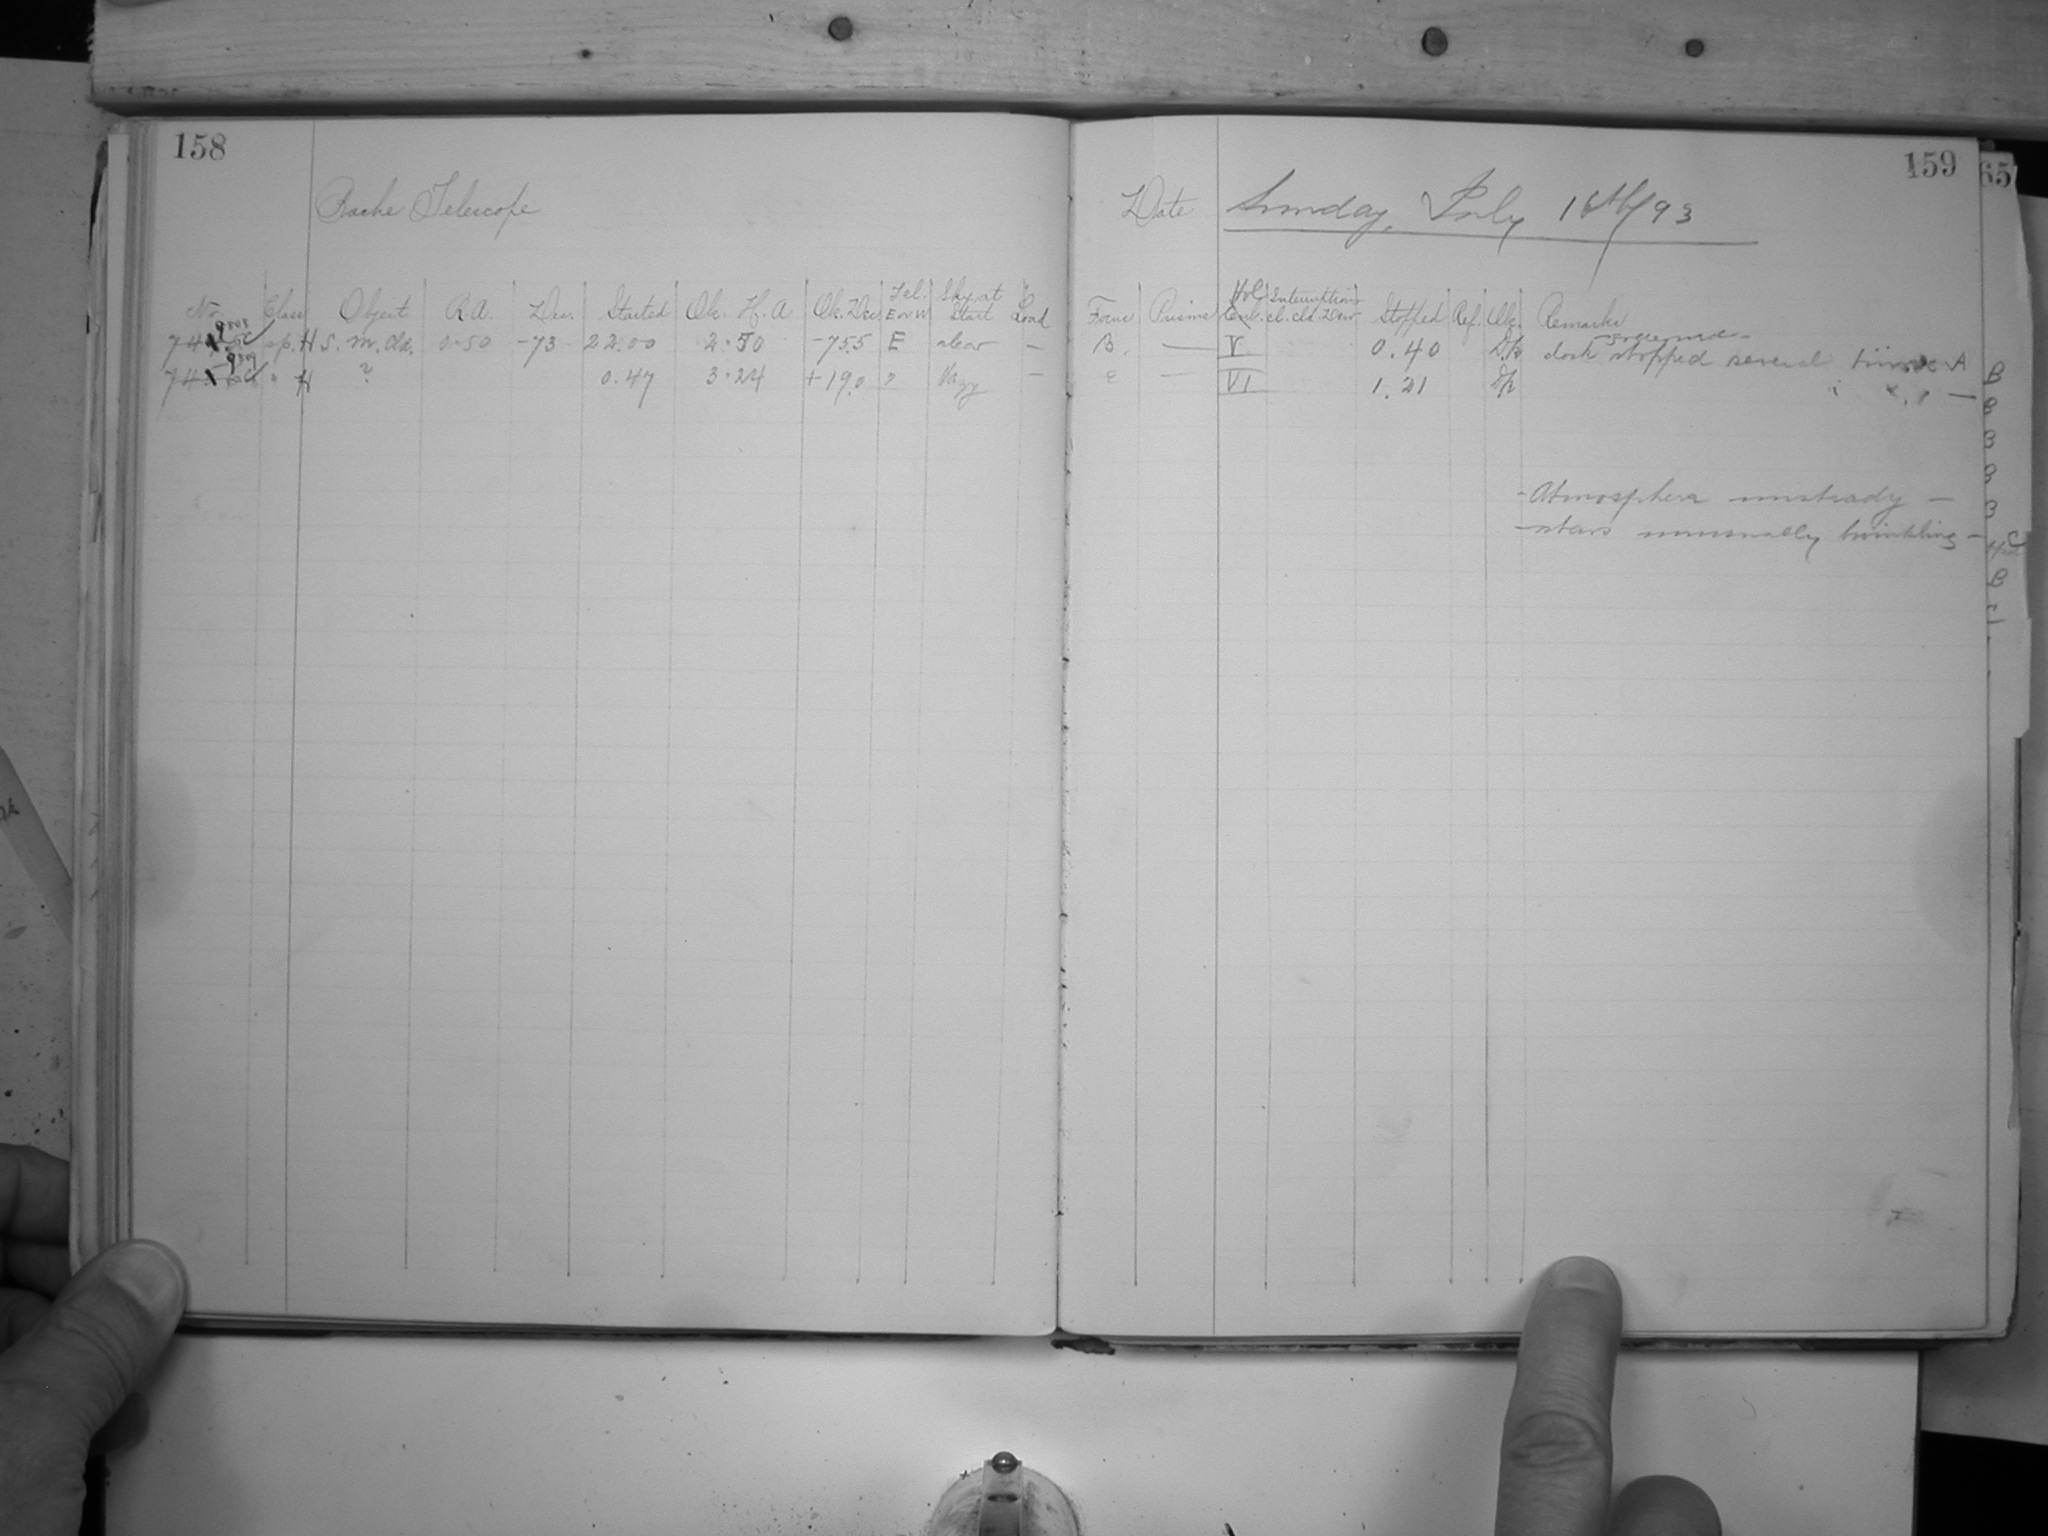 158
Bache Telescope
No. Class Object R.A. Dec. Started Ob. H. A Ob. Dec Tel. E or W Sky at Start Load
9808
sp. H S. m. cld. 0.50 -73 22.00 2.50 -75.5 E clear —
9809
" H ? 0.47 3.24 +19.0 " Hazy —
159
65
Date Sunday, July 16th/93
Focus Prisms Interruptions cl. cld Dew Stopped Ref. Ck. Remarks
B. — V 0.40 clock stopped several times A
— VI 1.21
- Atmosphere unsteady —
- stars unusually twinkling —
B
B
B
B
B
C
B